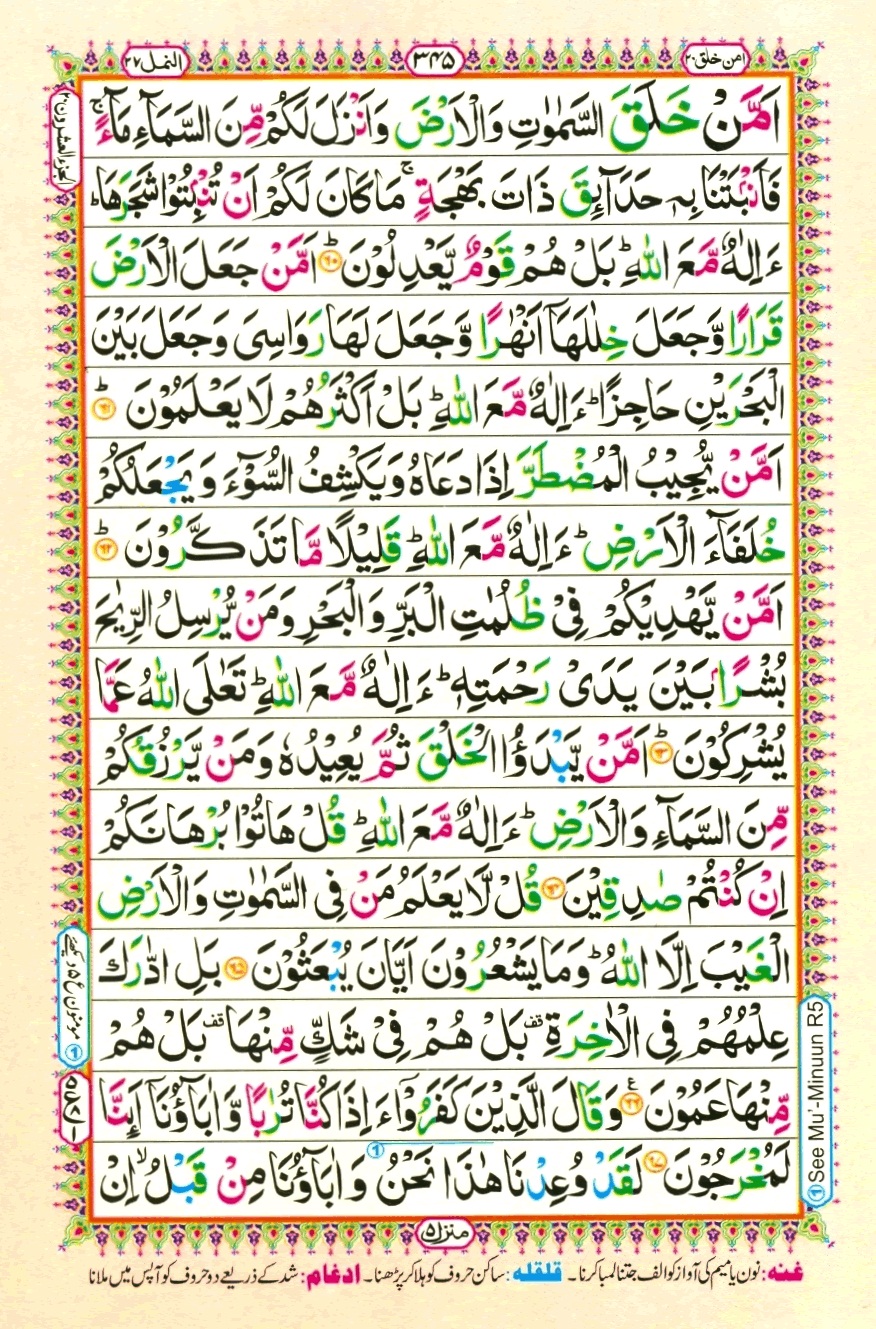 امن خلق ٢٠
٣٤٥
النمل ٢٧
اَمَّنْ خَلَقَ السَّمٰوٰتِ وَالْاَرْضَ وَاَنْزَلَ لَكُمْ مِّنَ السَّمَآءِ مَآءً ۚ
فَاَنْۢبَتْنَا بِهٖ حَدَآئِقَ ذَاتَ بَهْجَةٍ ۚ مَا كَانَ لَكُمْ اَنْ تُنْۢبِتُوْا شَجَرَهَا ؕ
ءَاِلٰهٌ مَّعَ اللّٰهِ ؕ بَلْ هُمْ قَوْمٌ يَّعْدِلُوْنَ ؕ﴿۶۰﴾ اَمَّنْ جَعَلَ الْاَرْضَ
قَرَارًا وَّجَعَلَ خِلٰلَهَاۤ اَنْهٰرًا وَّجَعَلَ لَهَا رَوَاسِيَ وَجَعَلَ بَيْنَ
الْبَحْرَيْنِ حَاجِزًا ؕ ءَاِلٰهٌ مَّعَ اللّٰهِ ؕ بَلْ اَكْثَرُهُمْ لَا يَعْلَمُوْنَ ؕ﴿۶۱﴾
اَمَّنْ يُّجِيْبُ الْمُضْطَرَّ اِذَا دَعَاهُ وَيَكْشِفُ السُّوْٓءَ وَيَجْعَلُكُمْ
خُلَفَآءَ الْاَرْضِ ؕ ءَاِلٰهٌ مَّعَ اللّٰهِ ؕ قَلِيْلًا مَّا تَذَكَّرُوْنَ ؕ﴿۶۲﴾
اَمَّنْ يَّهْدِيْكُمْ فِيْ ظُلُمٰتِ الْبَرِّ وَالْبَحْرِ وَمَنْ يُّرْسِلُ الرِّيٰحَ
بُشْرًۢا بَيْنَ يَدَيْ رَحْمَتِهٖ ؕ ءَاِلٰهٌ مَّعَ اللّٰهِ ؕ تَعٰلَى اللّٰهُ عَمَّا
يُشْرِكُوْنَ ؕ﴿۶۳﴾ اَمَّنْ يَّبْدَؤُا الْخَلْقَ ثُمَّ يُعِيْدُهٗ وَمَنْ يَّرْزُقُكُمْ
مِّنَ السَّمَآءِ وَالْاَرْضِ ؕ ءَاِلٰهٌ مَّعَ اللّٰهِ ؕ قُلْ هَاتُوْا بُرْهَانَكُمْ
اِنْ كُنْتُمْ صٰدِقِيْنَ ﴿۶۴﴾ قُلْ لَّا يَعْلَمُ مَنْ فِي السَّمٰوٰتِ وَالْاَرْضِ
الْغَيْبَ اِلَّا اللّٰهُ ؕ وَمَا يَشْعُرُوْنَ اَيَّانَ يُبْعَثُوْنَ ﴿۶۵﴾ بَلِ ادّٰرَكَ
عِلْمُهُمْ فِي الْاٰخِرَةِ ۟قف بَلْ هُمْ فِيْ شَكٍّ مِّنْهَا ۟قف بَلْ هُمْ
مِّنْهَا عَمُوْنَ ﴿۶۶﴾ وَقَالَ الَّذِيْنَ كَفَرُوْۤا ءَاِذَا كُنَّا تُرٰبًا وَّاٰبَآؤُنَاۤ اَئِنَّا
لَمُخْرَجُوْنَ ﴿۶۷﴾ لَقَدْ وُعِدْنَا هٰذَا نَحْنُ وَاٰبَآؤُنَا مِنْ قَبْلُ ۙ اِنْ
الجزء العشرون ٢٠
① See Mu'-Minuun R5
منزل ۵
غنہ: نون یا میم کی آواز کو الف جتنا لمبا کرنا۔ قلقلہ: ساکن حروف کو ہلا کر پڑھنا۔ ادغام: شد کے ذریعے دو حروف کو آپس میں ملانا